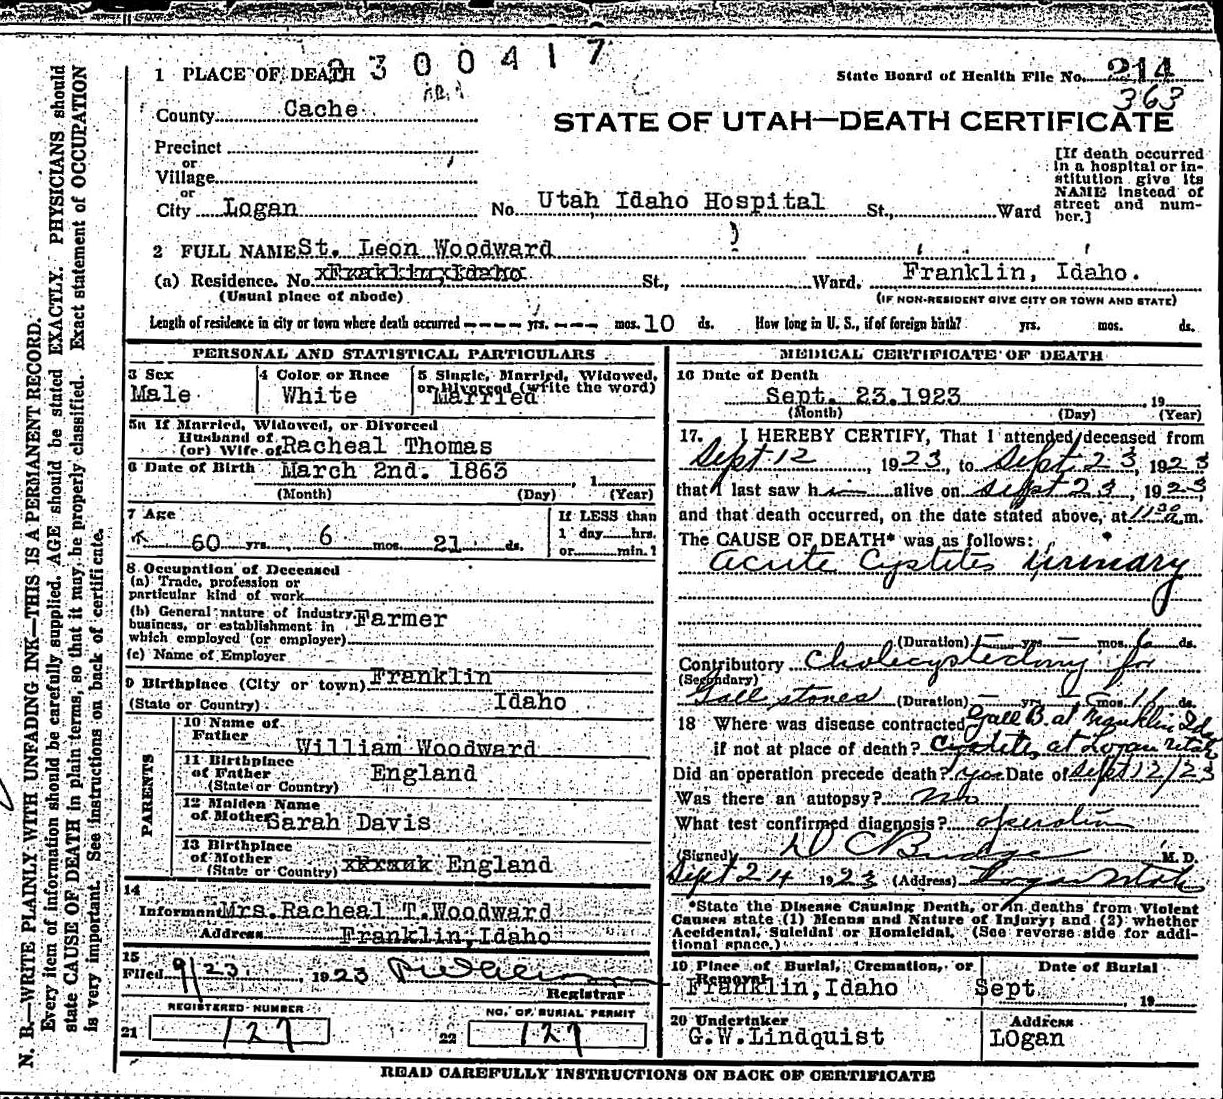 2300417
1 PLACE OF DEATH
State Board of Health File No. 214
363
County Cache
STATE OF UTAH—DEATH CERTIFICATE
Precinct
or
Village
or
City Logan No. Utah Idaho Hospital St., Ward
[If death occurred
in a hospital or in-
stitution give its
NAME instead of
street and num-
ber.]
2 FULL NAME St. Leon Woodward
(a) Residence. No. xFranklin,xIdaho St., Ward. Franklin, Idaho.
(Usual place of abode) (IF NON-RESIDENT GIVE CITY OR TOWN AND STATE)
Length of residence in city or town where death occurred ---- yrs. --- mos. 10 ds. How long in U. S., if of foreign birth? yrs. mos. ds.
PERSONAL AND STATISTICAL PARTICULARS
3 Sex
Male
4 Color or Race
White
5 Single, Married, Widowed,
or Divorced (write the word)
Married
5a If Married, Widowed, or Divorced
Husband of
(or) Wife of Racheal Thomas
6 Date of Birth March 2nd. 1863 , 1
(Month) (Day) (Year)
7 Age
60 yrs. 6 mos. 21 ds.
If LESS than
1 day hrs.
or min.?
8 Occupation of Deceased
(a) Trade, profession or
particular kind of work
(b) General nature of industry,
business, or establishment in
which employed (or employer) Farmer
(c) Name of Employer
9 Birthplace (City or town) Franklin
(State or Country) Idaho
PARENTS
10 Name of
Father William Woodward
11 Birthplace
of Father England
(State or Country)
12 Maiden Name
of Mother Sarah Davis
13 Birthplace
of Mother
(State or Country) England
14
Informant Mrs. Racheal T. Woodward
Address Franklin, Idaho
15
Filed 9/23. 1923
Registrar
REGISTERED NUMBER
21 127
NO. OF BURIAL PERMIT
22 127
MEDICAL CERTIFICATE OF DEATH
16 Date of Death
Sept. 23.1923 , 19
(Month) (Day) (Year)
17. I HEREBY CERTIFY, That I attended deceased from
Sept 12 , 1923, to Sept 23, 1923
that I last saw him alive on Sept 23, 1923,
and that death occurred, on the date stated above, at 11:30 a.m.
The CAUSE OF DEATH* was as follows:
Acute Cystites Urinary
(Duration) — yrs. — mos. 6 ds.
Contributory Cholecystectomy for
(Secondary)
Gall stones (Duration) — yrs. — mos. 11 ds.
18 Where was disease contracted Gall B. at Franklin Ida
if not at place of death? Cystites at Logan Utah
Did an operation precede death? yes Date of Sept 12/23
Was there an autopsy? no
What test confirmed diagnosis? operation
(Signed) D C Budge M. D.
Sept 24 1923 (Address) Logan Utah
*State the Disease Causing Death, or in deaths from Violent
Causes state (1) Means and Nature of Injury; and (2) whether
Accidental, Suicidal or Homicidal. (See reverse side for addi-
tional space.)
19 Place of Burial, Cremation, or
Removal
Franklin, Idaho
Date of Burial
Sept. 19
20 Undertaker
G.W.Lindquist
Address
LOgan
READ CAREFULLY INSTRUCTIONS ON BACK OF CERTIFICATE
N. B.—WRITE PLAINLY WITH UNFADING INK—THIS IS A PERMANENT RECORD.
Every item of information should be carefully supplied. AGE should be stated EXACTLY. PHYSICIANS should
state CAUSE OF DEATH in plain terms, so that it may be properly classified. Exact statement of OCCUPATION
is very important. See instructions on back of certificate.